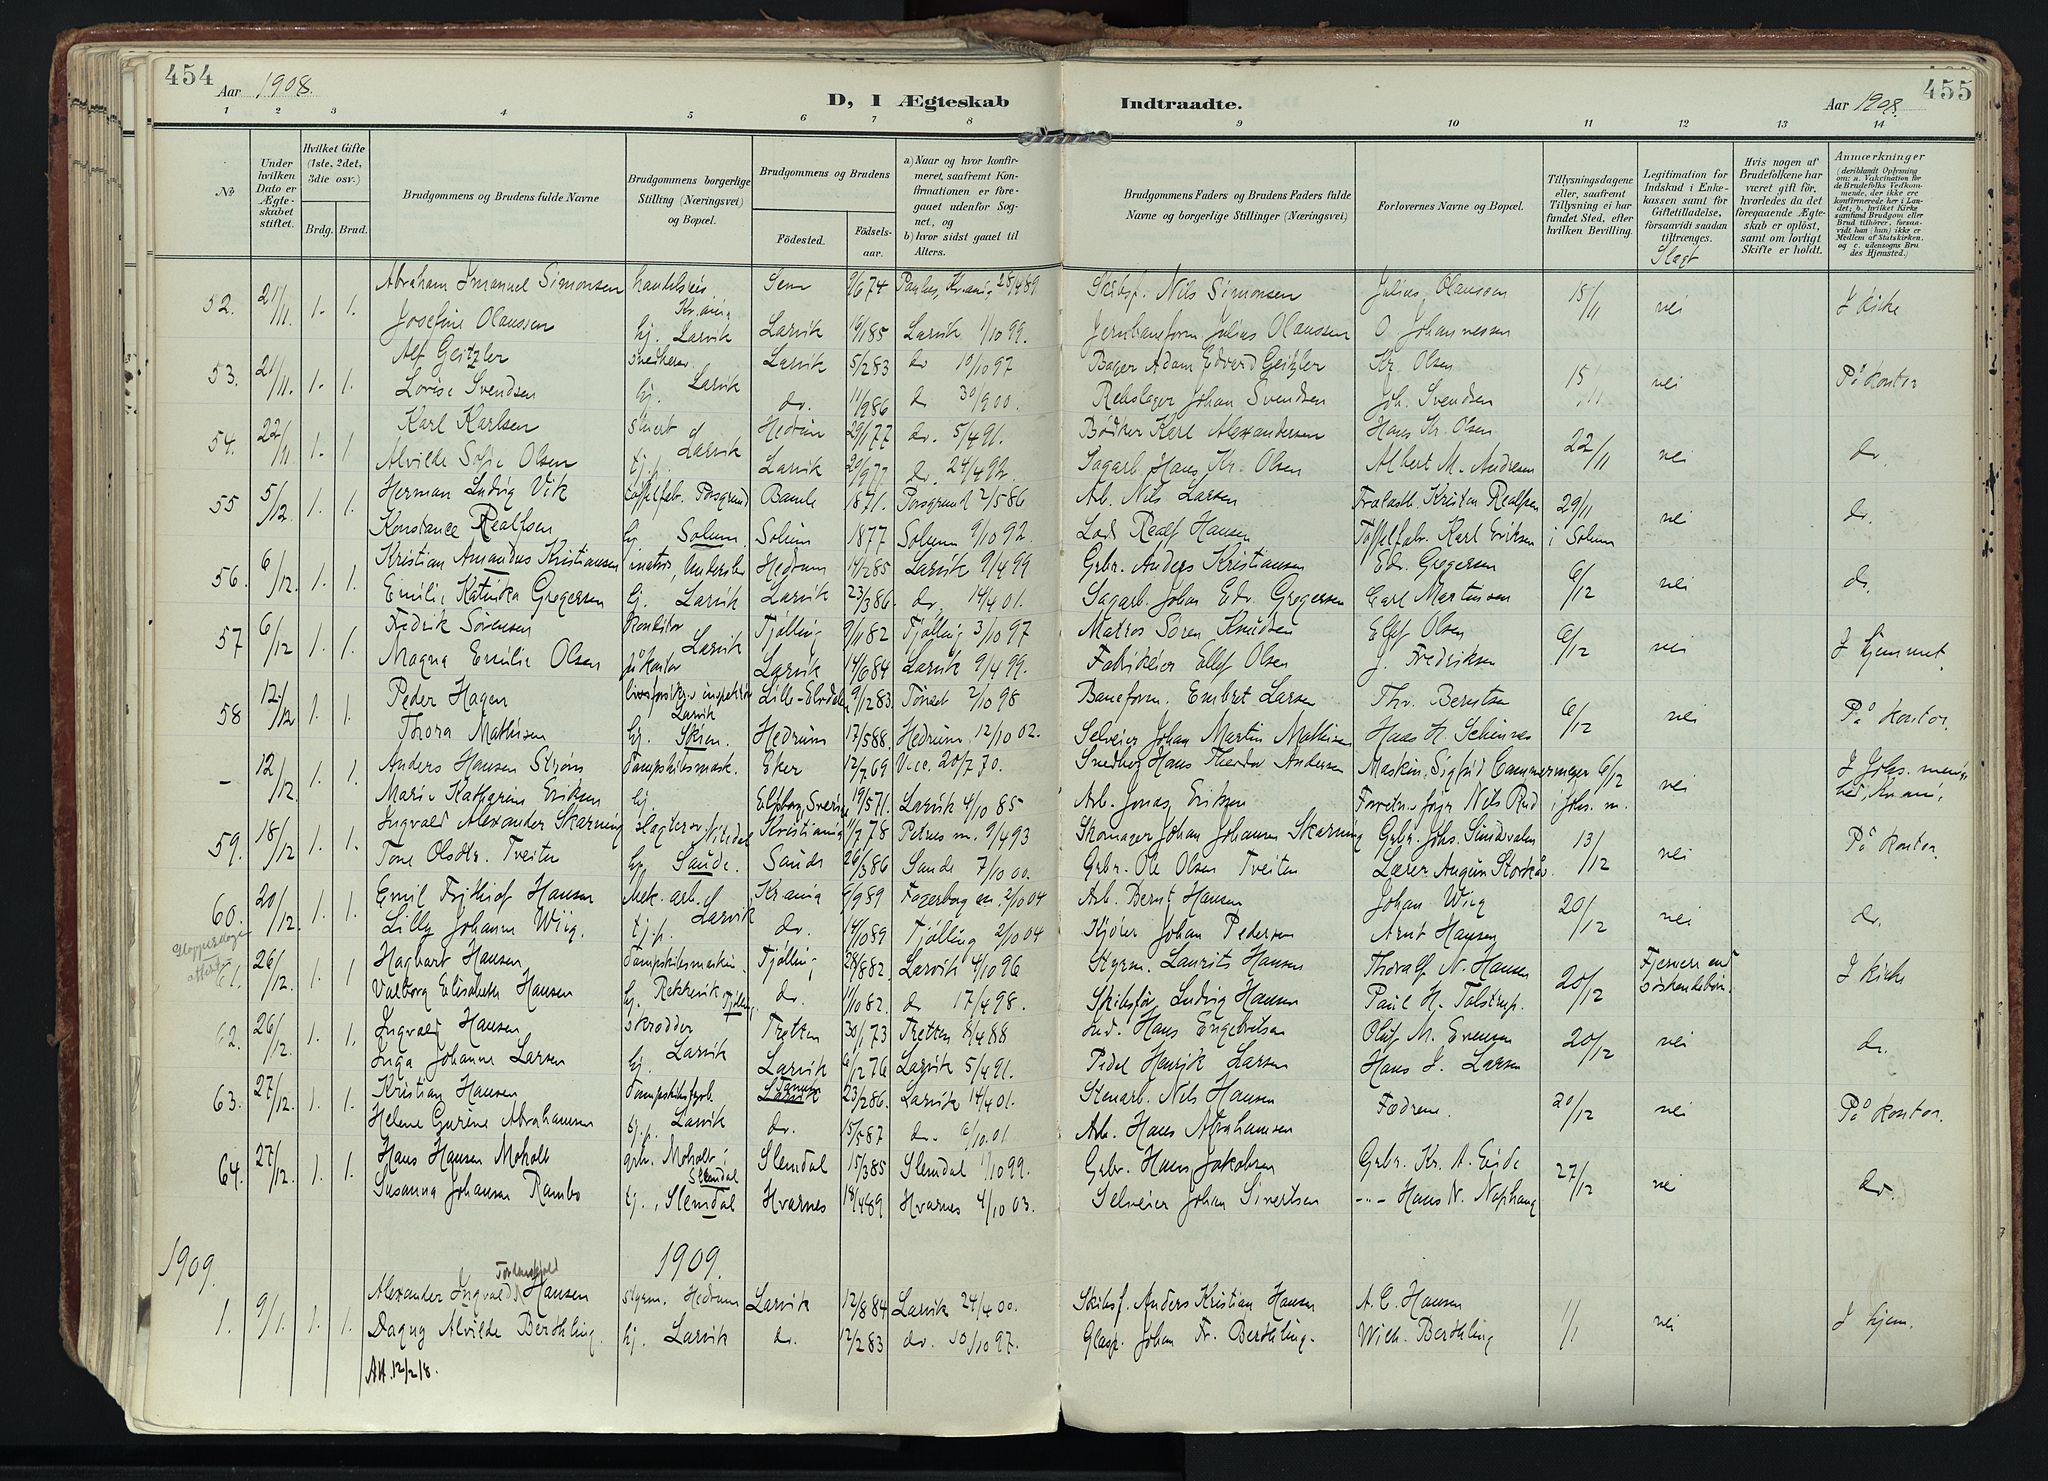 454
Aar 1908.
D, I Ægteskab
Indtraadte.
Aar 1908.
455
1 2 3 4 5 6 7 8 9 10 11 12 13 14
No
Under hvilken Dato er Ægteskabet stiftet.
Hvilket Gifte (1ste, 2det, 3die osv.)
Brdg. Brud.
Brudgommens og Brudens fulde Navne
Brudgommens borgerlige Stilling (Næringsvei) og Bopæl.
Brudgommens og Brudens
Fødested.
Fødselsaar.
a) Naar og hvor konfirmeret, saafremt Konfirmationen er foregaaet udenfor Sognet, og
b) hvor sidst gaaet til Alters.
Brudgommens Faders og Brudens Faders fulde Navne og borgerlige Stillinger (Næringsvei)
Forlovernes Navne og Bopæl.
Tillysningsdagene eller, saafremt Tillysning ei har fundet Sted, efter hvilken Bevilling.
Legitimation for Indskud i Enkekassen samt for Giftetilladelse, forsaavidt saadan tiltrænges.
Slægt
Hvis nogen af Brudefolkene har været gift før, hvorledes da det foregaaende Ægteskab er opløst, samt om lovligt Skifte er holdt.
Anmærkninger (deriblandt Oplysning om: a. Vakcination for de Brudefolks Vedkommende, der ikke ere konfirmerede her i Landet; b. hvilket Kirkesamfund Brudgom eller Brud tilhører, forsaavidt han (hun) ikke er Medlem af Statskirken, og c. udensogns Brudes Hjemsted.)
52. 21/11 1. 1. Abraham Imanuel Simonsen Sem 9/6 74 Paulus, Kr.ania 28/4 89 Skibsf. Nils Simonsen Julius Olaussen 15/11 nei I kirke
Kr.ania
Josefine Olaussen hj. Larvik Larvik 19/1 85 Larvik 1/10 99. Jernbaneform. Julius Olaussen O. Johannessen
53. 21/11 1. 1. Alf Geitzler Larvik 5/2 83 do 10/10 97 Bager Adam Edvard Geitzler Kr. Olsen 15/11 nei På kontor
Lovise Svendsen hj. Larvik do. 11/9 86 do 30/9 00. Rebslager Johan Svendsen Joh. Svendsen
54. 22/11 1. 1 Karl Karlsen stuert Larvik Hedrum 29/1 77 do. 5/4 91. Bødker Karl Alexandersen Hans Kr. Olsen 22/11 nei do.
Alvilde Sofie Olsen tj.p. Larvik 20/9 77 do. 24/4 92 Sagarb. Hans Kr. Olsen Albert M. Andresen
55 5/12 1. 1. Herman Ludvig Vik Porsgrund Bamle 1871. Porsgrund 2/5 86 Arb. Nils Larsen Kristen Realfsen 29/11 nei do.
Konstance Realfsen hj Solum. Solum 1877 Solum 9/10 92. Lods Realf Hansen Tøffelfabr. Karl Eriksen i Solum
56. 6/12. 1. 1. Kristian Amandus Kristiansen matros, Hedrum 14/2 85 Larvik 9/4 99 Grbr. Anders Kristiansen Edv. Gregersen 6/12 nei do.
Emilie Katinka Gregersen hj. Larvik Larvik 23/3 86. do. 14/4 01. Sagarb. Johan Edv. Gregersen Carl Martinsen
57 6/12 1. 1. Fredrik Sørensen Larvik Tjølling 9/11 82 Tjølling 3/10 97 Matros Søren Knudsen Ellef Olsen 6/12 nei I hjemmet.
Magna Emilie Olsen på kontor Larvik 14/6 84 Larvik 9/4 99. Fabrikeier Ellef Olsen J. Fredriksen
58 12/12 1. 1. Peder Hagen livsforsikr. inspektør Larvik Lille-Elvdalen 9/12 83 Tønset 2/10 98 Baneform. Embret Larsen Thv. Berntsen 6/12 nei På kontor.
Thora Mathisen hj. Skien. Hedrum 17/5 88. Hedrum 12/10 02. Selveier Johan Martin Mathisen Hans H. Schinnes
– 12/12. 1. 1. Anders Hansen Strøm Dampskibsmask. Eker 12/7 69 Vacc. 20/7 70. Snedker Hans Theodor Andersen Maskin. Sigfrid Cammermeyer 6/12 nei I Johs. menighed, Kr.ania,
Marie Katharine Eriksen hj Elfsborg, Sverige 19/5 71. Larvik 4/10 85 Arb. Jonas Eriksen Nils Rud i Johs. m.
59. 18/12 1. 1. Ingvald Alexander Skarning slagtersv. Nitedal Kristiania 11/7 78 Petrus m. 9/4 93 Skomager Johan Johansen Skarning Grbr. Johs. Sundsvalen 13/12 nei På kontor.
Tone Olsdtr. Tveiten hj. Saude. Saude 26/3 86 Saude 7/10 00. Grbr. Ole Olsen Tveiten Lærer Augun
60. 20/12. 1. 1. Emil Fritjhof Hansen Mek. arb. Larvik Kr.ania 6/9 89 Fagerborg m 2/10 04 Arb. Bernt Hansen Johan Wiig 20/12 nei do.
Lilly Johanne Wiig. tj.p. do. 14/10 89 Tjølling 2/10 04 Kjører Johan Pedersen Arnt Hansen
61. 26/12. 1. 1. Hagbart Hansen Dampskibsmaskin. Tjølling 28/8 82 Larvik 4/10 96 Styrm. Laurits Hansen Thoralf N. Hansen 20/12 Fjernere end Søskendebørn. I kirke
Valborg Elisabeth Hansen hj. Rekkevik Tjølling do. 11/10 82. do 17/4 98. Skibsfør. Ludvig Hansen Paul H. Tolstrup.
62. 26/12. 1. 1. Ingvald Hansen skrædder Larvik Tretten 30/1 73 Tretten 8/4 88 Ind. Hans Engebretsen Oluf M. Evensen 20/12 nei do.
Inga Johanne Larsen hj. Larvik 6/12 76 Larvik 5/4 91. Pedel Henrik Larsen Hans J. Larsen
63. 27/12. 1. 1. Kristian Hansen Dampskibsfyrb. Tanum Larvik 23/2 86. Larvik 14/4 01. Stenarb. Nils Hansen Fædrene. 20/12 nei På kontor.
Helene Gurine Abrahamsen tj.p. Larvik do. 15/5 87 do. 6/10 01 Arb. Hans Abrahamsen
64. 27/12. 1. 1. Hans Hansen Moholt grb. Moholt i Slemdal Slemdal 15/3 85 Slemdal 1/10 99. Grbr. Hans Jakobsen Grbr. Kr. A. Eide 27/12 nei do.
Susanna Johanne Rambo tj., Slemdal Hvarnes 18/4 89 Hvarnes 4/10 03. Selveier Johan Sivertsen -"- Hans N. Naphaug
1909.
1909.
Tordenskjold
1. 9/1. 1. 1. Alexander Ingvald Hansen styrm. Hedrum Larvik 12/8 84 Larvik 24/4 00. Skibsf. Anders Kristian Hansen A. C. Hansen 1/1 nei I hjem.
Dagny Alvilde Berthling. hj. Larvik do. 12/2 83 do. 10/10 97. Glasp. Johan Fr. Berthling. Wilh. Berthling
Att. 12/2 18.